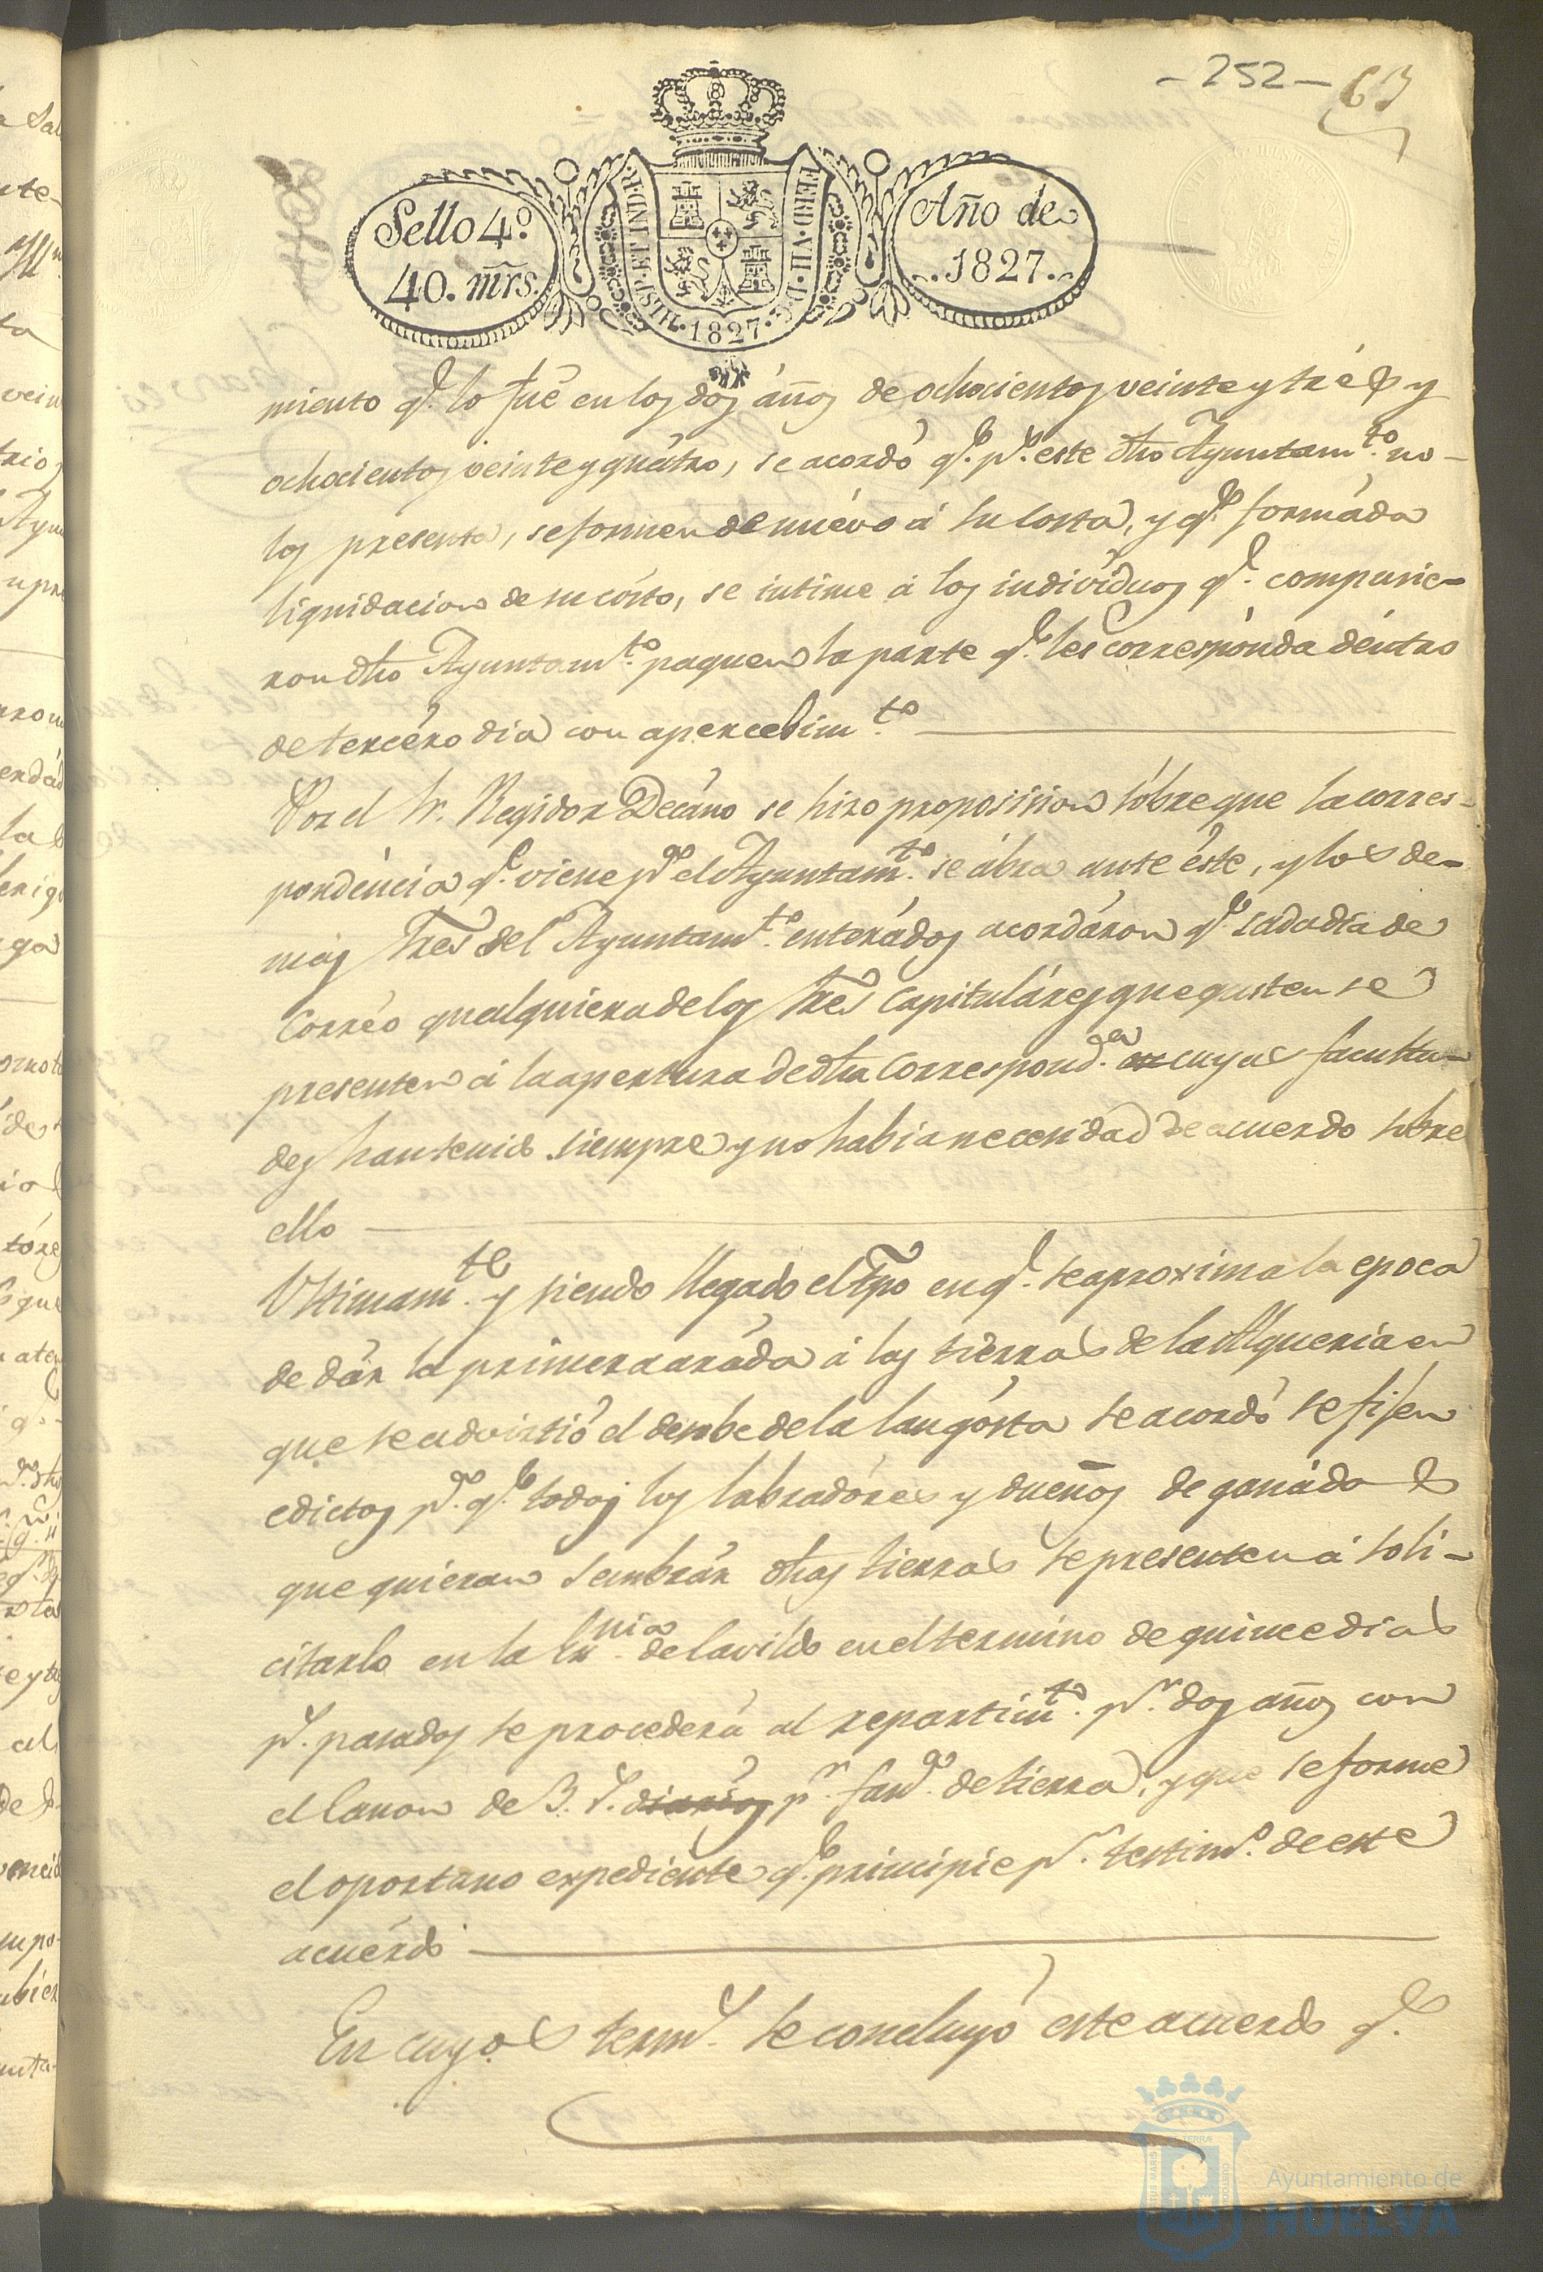 - 252 - 63
Sello 4º
40. mrs.
HISP. ET IND. R. 1827. FERD. VII. D. G.
Año de
1827.
miento q.e lo fué en los dos años de ochocientos veinte y tres y
ochocientos veinte y quatro, se acordó q.e p.r este dho Ayuntam.to no
los presenta, se formen de nuevo á su costa, y q.e formáda
liquidacion de su costo, se intime á los individuos q.e compusie-
ron dho Ayuntam.to paguen la parte q.e les corresponda dentro
de tercéro dia con apercebim.to
Por el Sr. Regidor Decáno se hizo proposision sóbre que la corres-
pondéncia q.e viene p.a el Ayuntam.to se ábra ante éste, y los de-
mas Sres del Ayuntam.to enterádos acordáron q.e cada dia de
Corréo qualquiera de los Sres Capituláres que gusten se
presenten á la apertura de dha Correspond.a cuyas faculta-
des han tenido siempre y no habia necesidad de acuerdo sobre
ello
Ultimam.te y siendo llegado el tpo en q.e se aproxima la epoca
de dár la primera aráda á las tierras de la Alqueria en
que se advirtió el desobe de la langósta se acordó se fijen
edictos p.a q.e todos los labradóres y dueños de ganádo
que quieran sembrár dhas tierras se presenten á soli-
citarlo en la Srnia de Cavildo en el termino de quince dias
p.s pasados se procederá al repartim.to p.r dos años con
el Canon de 3. r.s diarios p.r fan.a de tierra, y que se forme
el oportuno expediente q.e principie p.r testim.o de este
acuérdo
En cuyos term.s se concluyó este acuerdo q.e
Ayuntamiento de
HUELVA